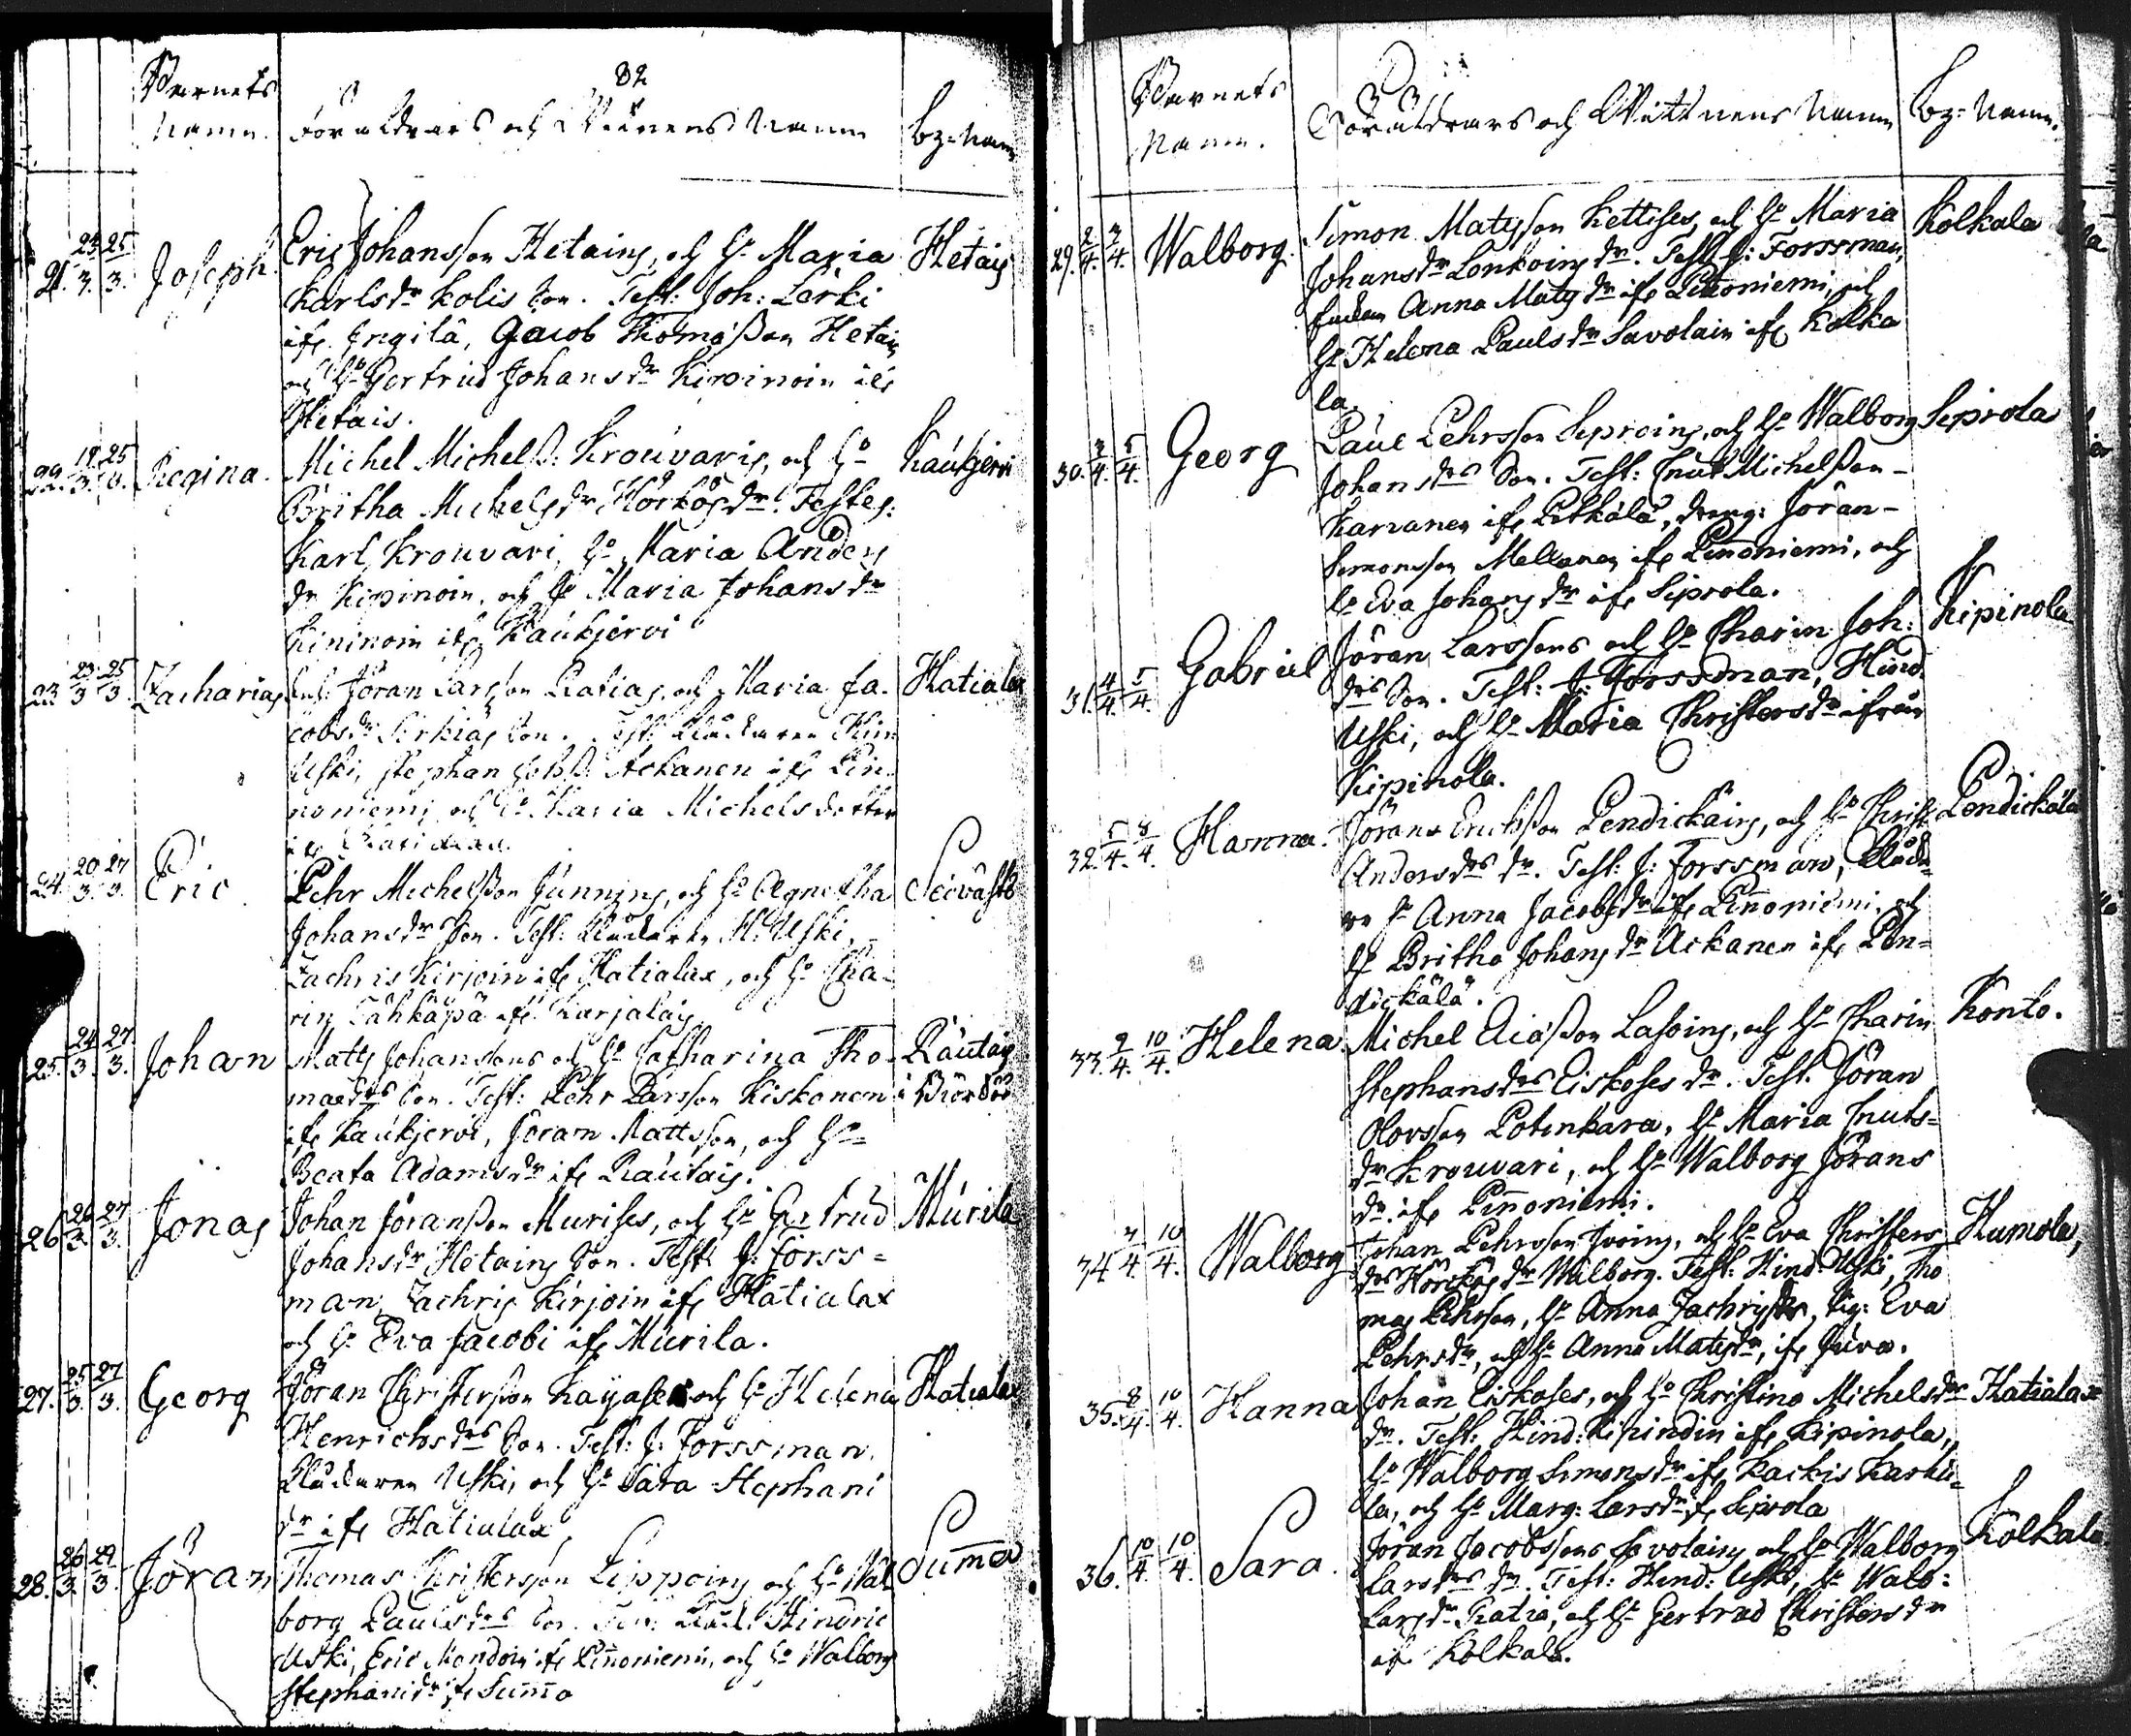 82
Barnets
Namn. Föräldrars och Wittnens Namn by=Namn
21. 23/3. 25/3. Joseph. Eric Johansson Hetains, och h: Maria Hetais
Karlsdr Kolis son. Test: Joh: Lerki
ifr. Ingilä, Jacob Thomasson Hetain
och h: Gertrud Johansdr Kipinoin ifr
Hetais.
22. 18/3. 25/3. Regina. Michel Michelss: Krouvaris, och h: Kaukjervi
Britha Michelsdr Hörkös dr. Testes:
Karl Krouvari, h: Maria Anders
dr Kipinoin, och h: Maria Johansdr
Kininoin ifr Kaukjervi
23 23/3 25/3. Zacharias Jöran Larsson Ratias, och Maria Ja- Hatialax
cobsdr Pirkiäs son. Test: Klockaren Hin
Uski, Stephan Johss: Ackanen ifr Pin
noniemi och h: Maria Michelsdotter
24. 20/3. 27/3. Eric. Pehr Michelsson Junnins, och h: Agnetha Seivästö
Johansdr son. Test: Klockaren H: Uski,
Zachris Kirjoin ifr Hatialax, och h: Cha-
rin Tähkäpä ifr Karjalais
25. 24/3. 27/3. Johan Matts Johanssons och h: Catharina Tho- Rautais
masdrs son. Test: Pehr Larsson Kiskonen i Biördö
ifr Kaukjervi, Jöran Mattsson, och h:
Beata Adamsdr ifr Rautais.
26 26/3. 27/3. Jonas Johan Jöransson Murises, och h: Gertrud Murila
Johansdr Hetains son. Test: J: Forss=
man, Zachris Kirjoin ifr Hatialax
och h: Eva Jacobi ifr Murila.
27. 25/3. 27/3. Georg Jöran Christersson Kayases och h: Helena Hatialax
Henrichsdrs son. Test: J: Forssman,
Klockaren Uski, och h: Sara Stephani
dr ifr Hatialax,
28. 26/3. 29/3. Jöran Thomas Christersson Lippoins och h: Wal Summa
borg Paulsdrs son. Test: Klock: Hindric
Uski, Eric Mondoin ifr Pinnoniemi, och h: Walborg
Stephanidr ifr Summa
Barnets
Namn. Föräldrars och Wittnens Namn by=Namn.
29. 2/4. 3/4. Walborg. Simon Matsson Kettises, och h: Maria Kolkala
Johansdr Lonkoins dr. Test: J: Forssman,
Anna Matsdr ifr Pinnoniemi, och
h: Helena Paulsdr Savolain ifr Kolka
la.
30. 3/4. 5/4. Georg Paul Pehrsson Seproins, och h: Walborg Seprola
Johansdrs son. Test: Cnut Michelsson
Karvanen ifr Pitkälä, dreng: Jöran
Simonsson Mellanen ifr Pinnoniemi, och
h: Eva Johansdr ifr Siprola.
31. 4/4. 5/4. Gabriel Jöran Larssons och h: Charin Joh: Kipinola
drs son. Test: J: Forssman, Hind.
Uski, och h: Maria Christersdr ifrån
Kipinola.
32. 5/4. 8/4. Hanna. Jörans Ericsson Pendickäins, och h: Christ Pendickälä
Andersdrs dr. Test: J: Forssman, Klocka
re h: Anna Jacobsdr ifr Pinnoniemi, och
h: Britha Johansdr Ackanen ifr Pen=
dickälä.
33. 9/4. 10/4. Helena. Michel Lasoins, och h: Charin Konto.
Stephansdrs Eiskoses dr. Test. Jöran
Olovsson Potinkara, h: Maria Cnuts=
dr Krouvari, och h: Walborg Jörans
dr ifr Pinnoniemi.
34 7/4. 10/4. Walborg Johan Pehrsson Ivoins, och h: Eva Christers Humola,
drs Hörckös dr Walborg. Test: Hind. Uski, Tho
mas Pehrsson, h: Anna Zachrisdr, Pig: Eva
Pehrsdr, och h: Anna Matsdr, ifr Juva.
35. 8/4. 10/4. Hanna Johan Eiskoses, och h: Christina Michelsdrs Hatialax
dr. Test: Hind: Kipindin ifr Kipinola,
h: Walborg Simonsdr ifr Kackis Karku=
la, och h: Marg: Larsdr ifr Siprola
36. 10/4. 10/4. Sara. Jöran Jacobssons Savolains och h: Walborg Kolkala
Larsdrs dr. Test: Hind: Uski, h: Walb:
Larsdr Ratia, och h: Gertrud Christersdr
ifr Kolkala.